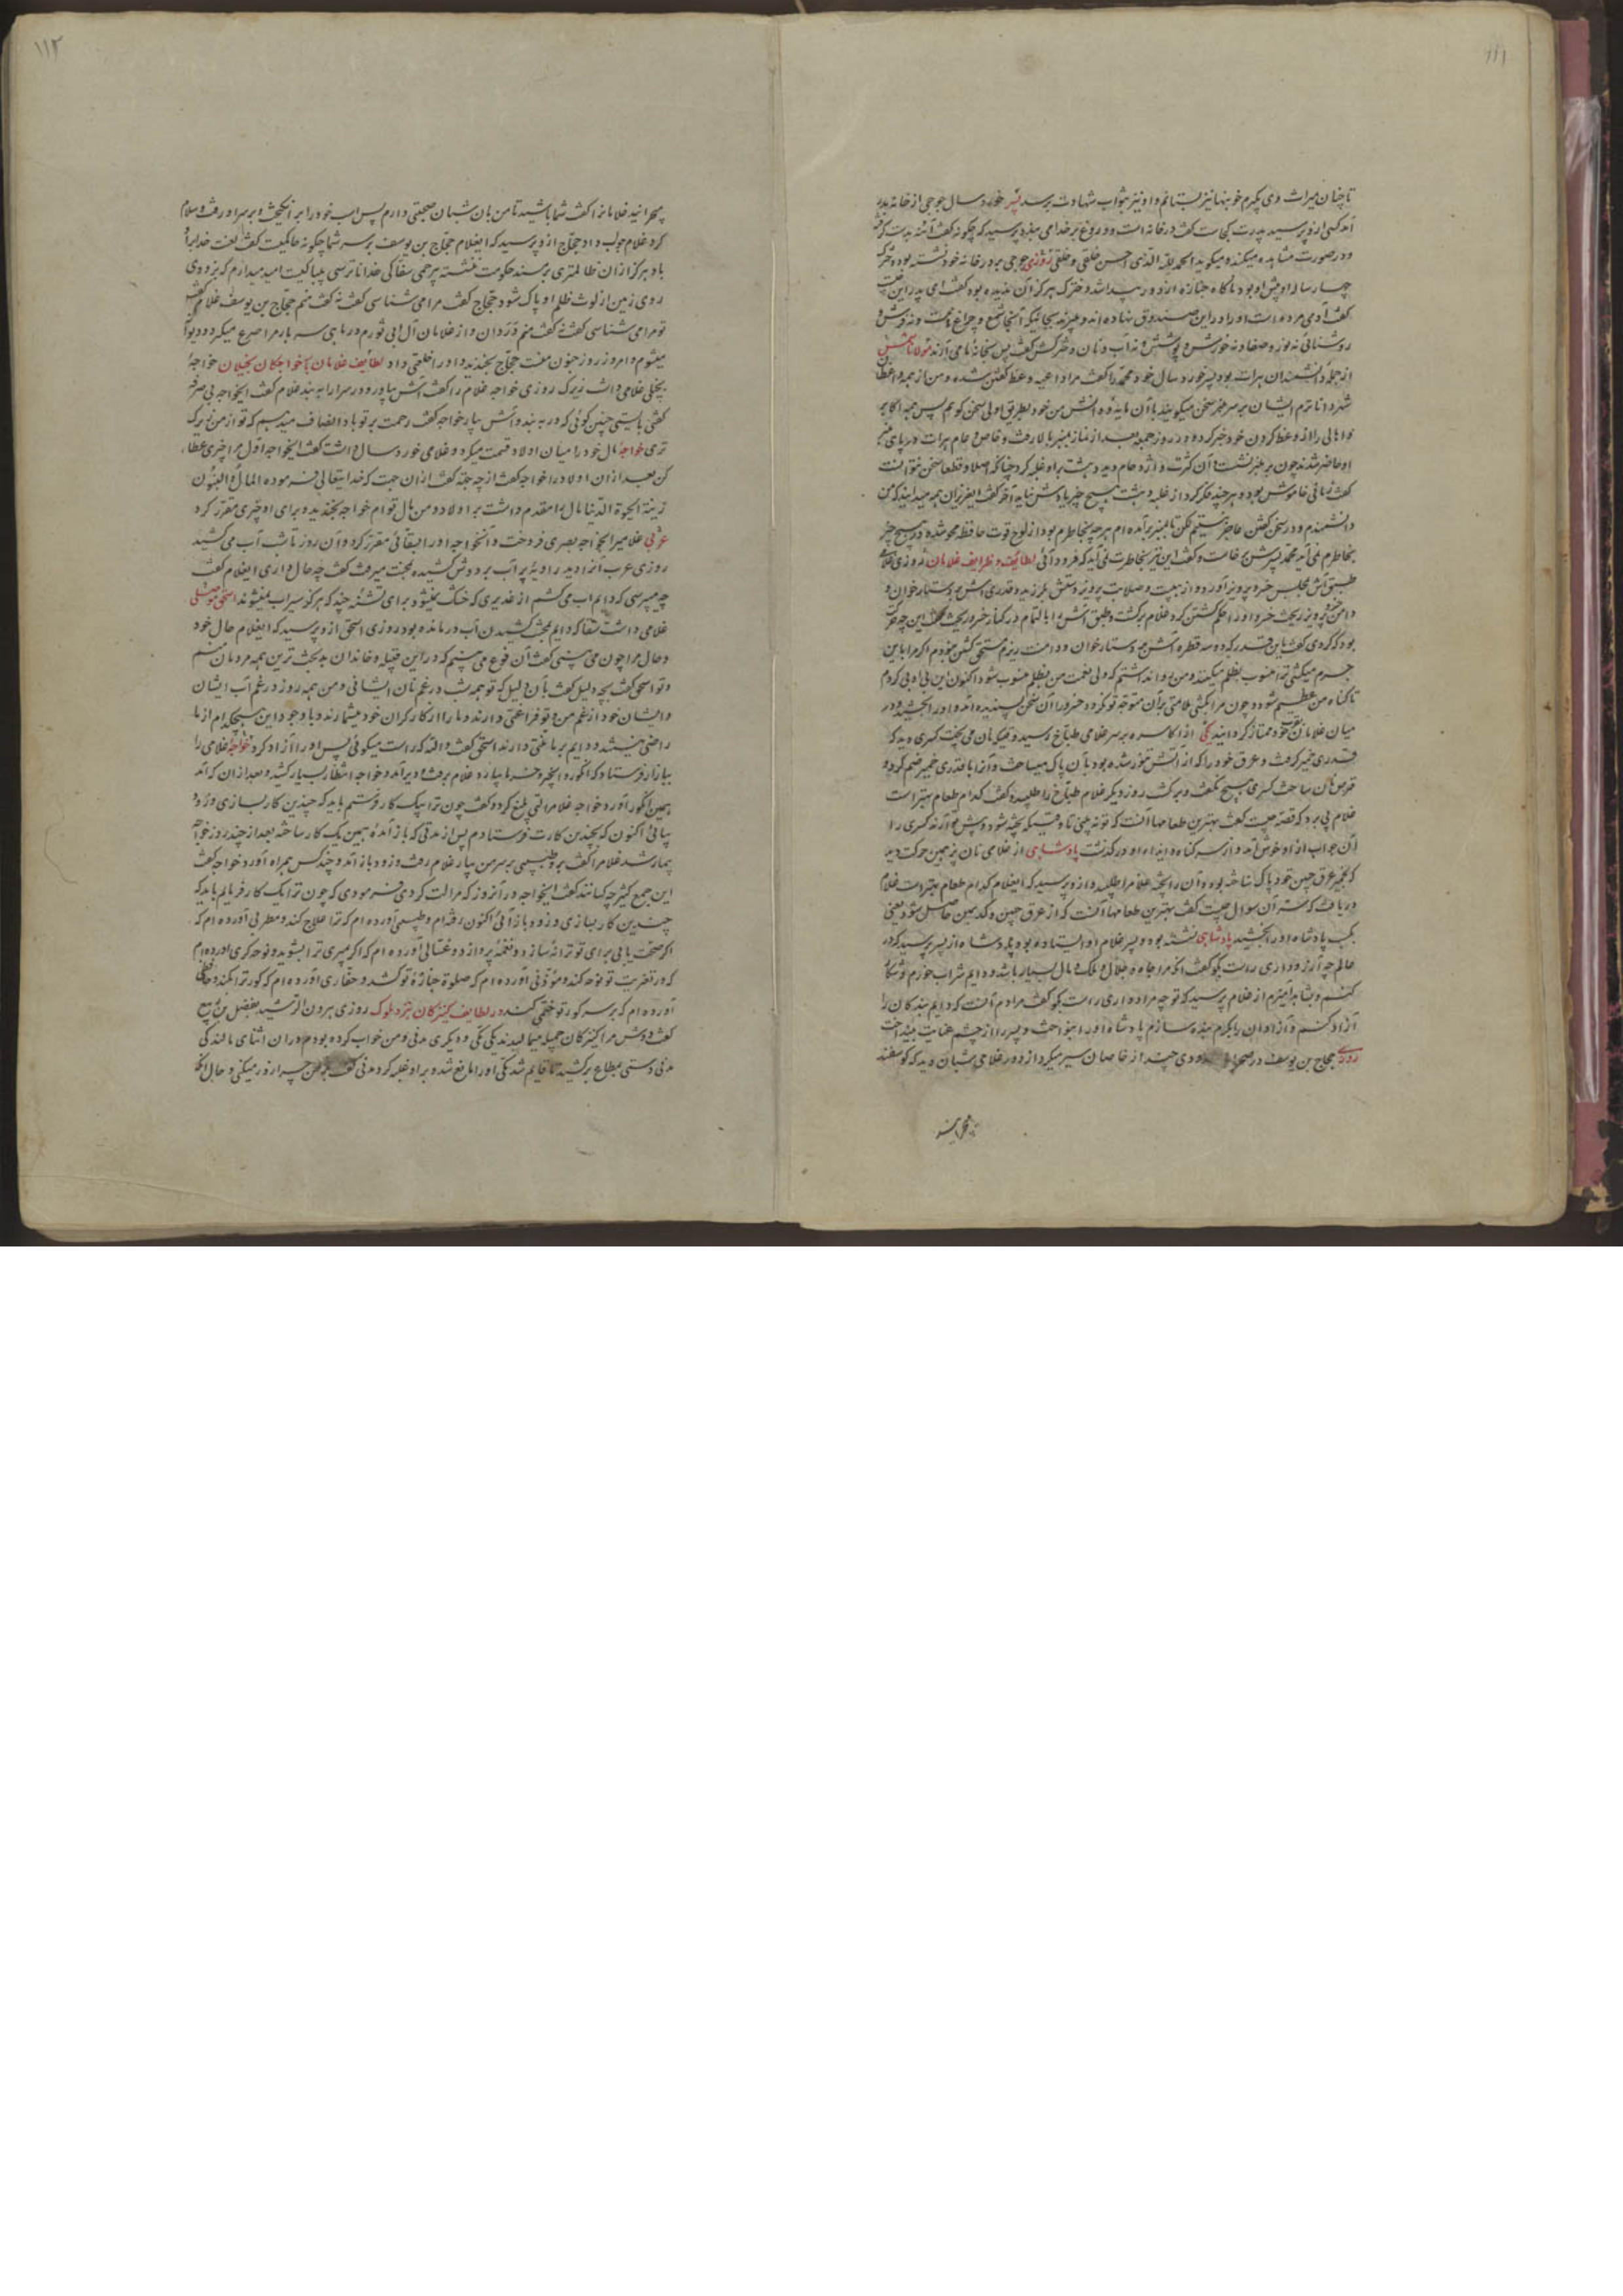 ۱۱۱
تا چنان میراث وی بگیرم خونبها نیز بستانم و او نیز بثواب شهادت برسد پسر خورد سال جوحی از خانه بدر
آمد کسی ازو پرسید پدرت کجاست گفت در خانه است و دروغ بر خدا می بندد پرسید که چگونه گفت آئینه بدست گرفته
و در صورت مشاهده میکند و میگوید الحمد لله الذی احسن خلقی و خلقی روزی جوحی بر در خانه خود نشسته بود و دختر
چهار ساله او پیش او بود ناگاه جنازه از دور پیدا شد و دخترک هرگز آن ندیده بود گفت ای پدر این چیست
گفت آدمی مرده است او را در این صندوق نهاده اند و میبرند بجائیکه آنجا نه شمع و چراغ است و نه فرش و
روشنائی نه نور و صفا و نه خورش و پوشش و نه آب و نان دخترکش گفت پس بخانه ما می آرند مولانا
از جمله دانشمندان هرات بود پسر خورد سال خود محمد را گفت مرا داعیه وعظ گفتن شده و من از همه واعظان
شهر داناترم ایشان بر سر منبر سخن میگویند با آن مایه دانش من خود بطریق اولی سخن گویم پس همه اکابر
و اهالی را از وعظ کردن خود خبر کرد و در روز جمعه بعد از نماز بمنبر بالا رفت و خاص و عام هرات در پای منبر
او حاضر شدند چون بر منبر نشست و آن کثرت و اژدحام دید دهشت بر او غلبه کرد چنانکه اصلا و قطعا سخن نتوانست
گفت زمانی خاموش بود و هر چند فکر کرد از غلبه دهشت هیچ چیز یادش نیامد آخر گفت ای عزیزان همه میدانید که من
دانشمندم و در سخن گفتن عاجز نیستم لکن تا بمنبر برآمده ام هر چه بخاطرم بود از لوح قوت حافظه محو شده و هیچ چیز
بخاطرم نمی آید محمد پسرش برخاست و گفت این نیز بخاطرت نمی آید که فرود آئی لطائف و ظرایف غلامان روزی غلامی
طبق آش بمجلس خسرو پرویز آورد و از هیبت و صلابت پرویز دستش بلرزید و قدری آش بر دستار خوان و
دامن پرویز ریخت خسرو او را حکم کشتن کرد غلام برگشت و طبق آش را بالتمام در کنار خسرو ریخت گفت این چه حرکت
بود که کردی گفت باین قدر که دو سه قطره آش بر دستار خوان و دامنت ریزم مستحق کشتن نبودم اگر مرا باین
جرم میکشتی ترا منسوب بظلم میکنند و من روا نداشتم که ولی نعمت من بظلم منسوب شود اکنون این بی ادبی کردم
تا گناه من عظیم شود و چون مرا بکشی ملامتی بر آن متوجه تو نگردد خسرو را آن سخن پسندیده آمد و او را بخشید و در
میان غلامان خود ممتاز گردانید یکی از اکاسره بر سر غلامی طباخ رسید و میگویان می پخت کسری دید که
قدری خمیر گرفت و عرق خود را که از آتش تنور شده بود بآن پاک میساخت و آنرا با قدری خمیر ضم کرد و
قرص نان ساخت کسری هیچ نگفت و برگشت روز دیگر غلام طباخ را طلبید و گفت کدام طعام بهتر است
غلام پی برد که قصه چیست گفت بهترین طعامها آنست که تو نه بینی تا وقتیکه پخته شود و پیش تو آرند کسری را
آن جواب از او خوش آمد و از سر گناه و ایذاء او درگذشت پادشاهی از غلامی نان پز همین حرکت دید
که بخمیر عرق جبین خود پاک ساخته بود و آن را پخته غلام را طلبید و ازو پرسید که ایغلام کدام طعام بهتر است غلام
دریافت که منشاء آن سوال چیست گفت بهترین طعامها آنست که از عرق جبین و کد یمین حاصل شود یعنی
بکسب پادشاه او را بخشید پادشاهی نشسته بود و پسر و غلام او ایستاده بود پادشاه از پسر پرسید که در
عالم چه آرزو داری راست بگو گفت آنکه مرا جاه و جلال و ملک و مال بسیار باشد و دایم شراب خورم و شکار
کنم و با شاهد آمیزم از غلام پرسید که تو چه مراد داری راست بگو گفت مرادم آنست که دایم بندگان را
آزاد کنم و آزادان را بکرم بنده سازم پادشاه او را بنواخت و پسر را از چشم عنایت بینداخت
روزی حجاج بن یوسف در صحرا با معدودی چند از خاصان سیر میکرد از دور غلامی شبان دید که گوسفند
۱۱۲
میچرانید غلامانرا گفت شما باشید تا من با آن شبان صحبتی دارم پس اسب خود را برانگیخت و بر سر او رفت و سلام
کرد غلام جواب داد حجاج ازو پرسید که ایغلام حجاج بن یوسف بر سر شما چگونه حاکمیست گفت لعنت خدا بر او
باد هرگز از آن ظالمتری بر مسند حکومت ننشسته بیرحمی سفاکی خدا ناترسی بیباکیست امید میدارم که بزودی
روی زمین از لوث ظلم او پاک شود حجاج گفت مرا می شناسی گفت نه گفت منم حجاج بن یوسف غلام گفت
تو مرا می شناسی گفت نه گفت منم وردان و از غلامان آل ابی ثورم در ماهی سه بار مرا صرع میگیرد و دیوانه
میشوم و امروز روز جنون منست حجاج بخندید و او را خلعتی داد لطائف غلامان با خواجگان بخیلان خواجه
بخیلی غلامی داشت زیرک روزی خواجه غلام را گفت آش بیاور و در سرا را ببند غلام گفت ایخواجه بی صرفه
گفتی بایستی چنین گوئی که در ببند و آش بیار خواجه گفت رحمت بر تو باد انصاف میدهم که تو از من زیرک
تری خواجه مال خود را میان اولاد قسمت میکرد و غلامی خورد سال داشت گفت ایخواجه اول مرا چیزی عطاء
کن بعد از آن اولاد را خواجه گفت از چه جهة گفت از آن جهت که خدایتعالی فرموده المال و البنون
زینة الحیوة الدنیا مال را مقدم داشت بر اولاد و من مال توام خواجه بخندید و برای او چیزی مقرر کرد
عربی غلامیرا بخواجه بصری فروخت و آنخواجه او را بسقائی مقرر کرد و آن روز تا شب آب می کشید
روزی عرب آنرا دید راویه پر آب بر دوش کشیده بمحنت میرفت گفت چه حال داری ایغلام گفت
چه میپرسی که دایم آب می کشم از غدیری که خشک نمیشود برای تشنه چند که هرگز سیراب نمیشوند اسحق موصلی
غلامی داشت سقا که دایم بمحنت کشیدن آب درمانده بود روزی اسحق ازو پرسید که ایغلام حال خود
و حال مرا چون می بینی گفت آن نوع می بینم که در این قبیله و خاندان بدبخت ترین همه مردمان منم
و تو اسحق گفت بچه دلیل گفت بآن دلیل که تو همه شب در غم نان ایشانی و من همه روز در غم آب ایشان
و ایشان خود از غم من و تو فراغتی دارند و ما را از کارگران خود میشمارند و با وجود این هیچکدام از ما
راضی نمیشوند و دایم بر ما منتی دارند اسحق گفت والله که راست میگوئی پس او را آزاد کرد خواجه غلامی را
ببازار فرستاد که انگور و انجیر و خرما بیارد غلام برفت و دیر آمد و خواجه انتظار بسیار کشید و بعد از آن که آمد
همین انگور آورد خواجه غلام را لتی بلیغ کرد و گفت چون ترا بیک کار فرستم باید که چندین کار بسازی و زود
بیائی اکنون که بچندین کارت فرستادم پس از مدتی که باز آمدۀ همین یک کار ساخته بعد از چند روز خواجه
بیمار شد غلام را گفت برو طبیبی بر سر من بیار غلام رفت و زود باز آمد و چند کس همراه آورد خواجه گفت
این جمع کثیر چه کسانند گفت ایخواجه در آنروز که مرا لت کردی فرمودی که چون ترا یک کار فرمایم باید که
چندین کار بسازی و زود باز آئی اکنون رفته ام و طبیبی آورده ام که ترا علاج کند و مطربی آورده ام که
اگر صحت یابی برای تو ترانه سازد و نغمه پردازد و غسالی آورده ام که اگر میری ترا بشوید و نوحه گری آورده ام
که در تعزیت تو نوحه کند و مؤذنی آورده ام که صلوة جنازۀ تو کشد و حفاری آورده ام که گور ترا بکند و حافظی
آورده ام که بر سر گور تو ختمی کند در لطایف کنیزکان نزد ملوک روزی هرون الرشید بفضل بن ربیع
گفت دوش مرا کنیزکان جمیله میمالیدند یکی مکی و دیگری مدنی و من خواب کرده بودم در آن اثنای مالندگی
مدنی دستی بمطاع برکشید تا قایم شد مکی آورا مانع شد و بر او غلبه کرد مدنی گفت چرا زور میکنی و حال آنکه